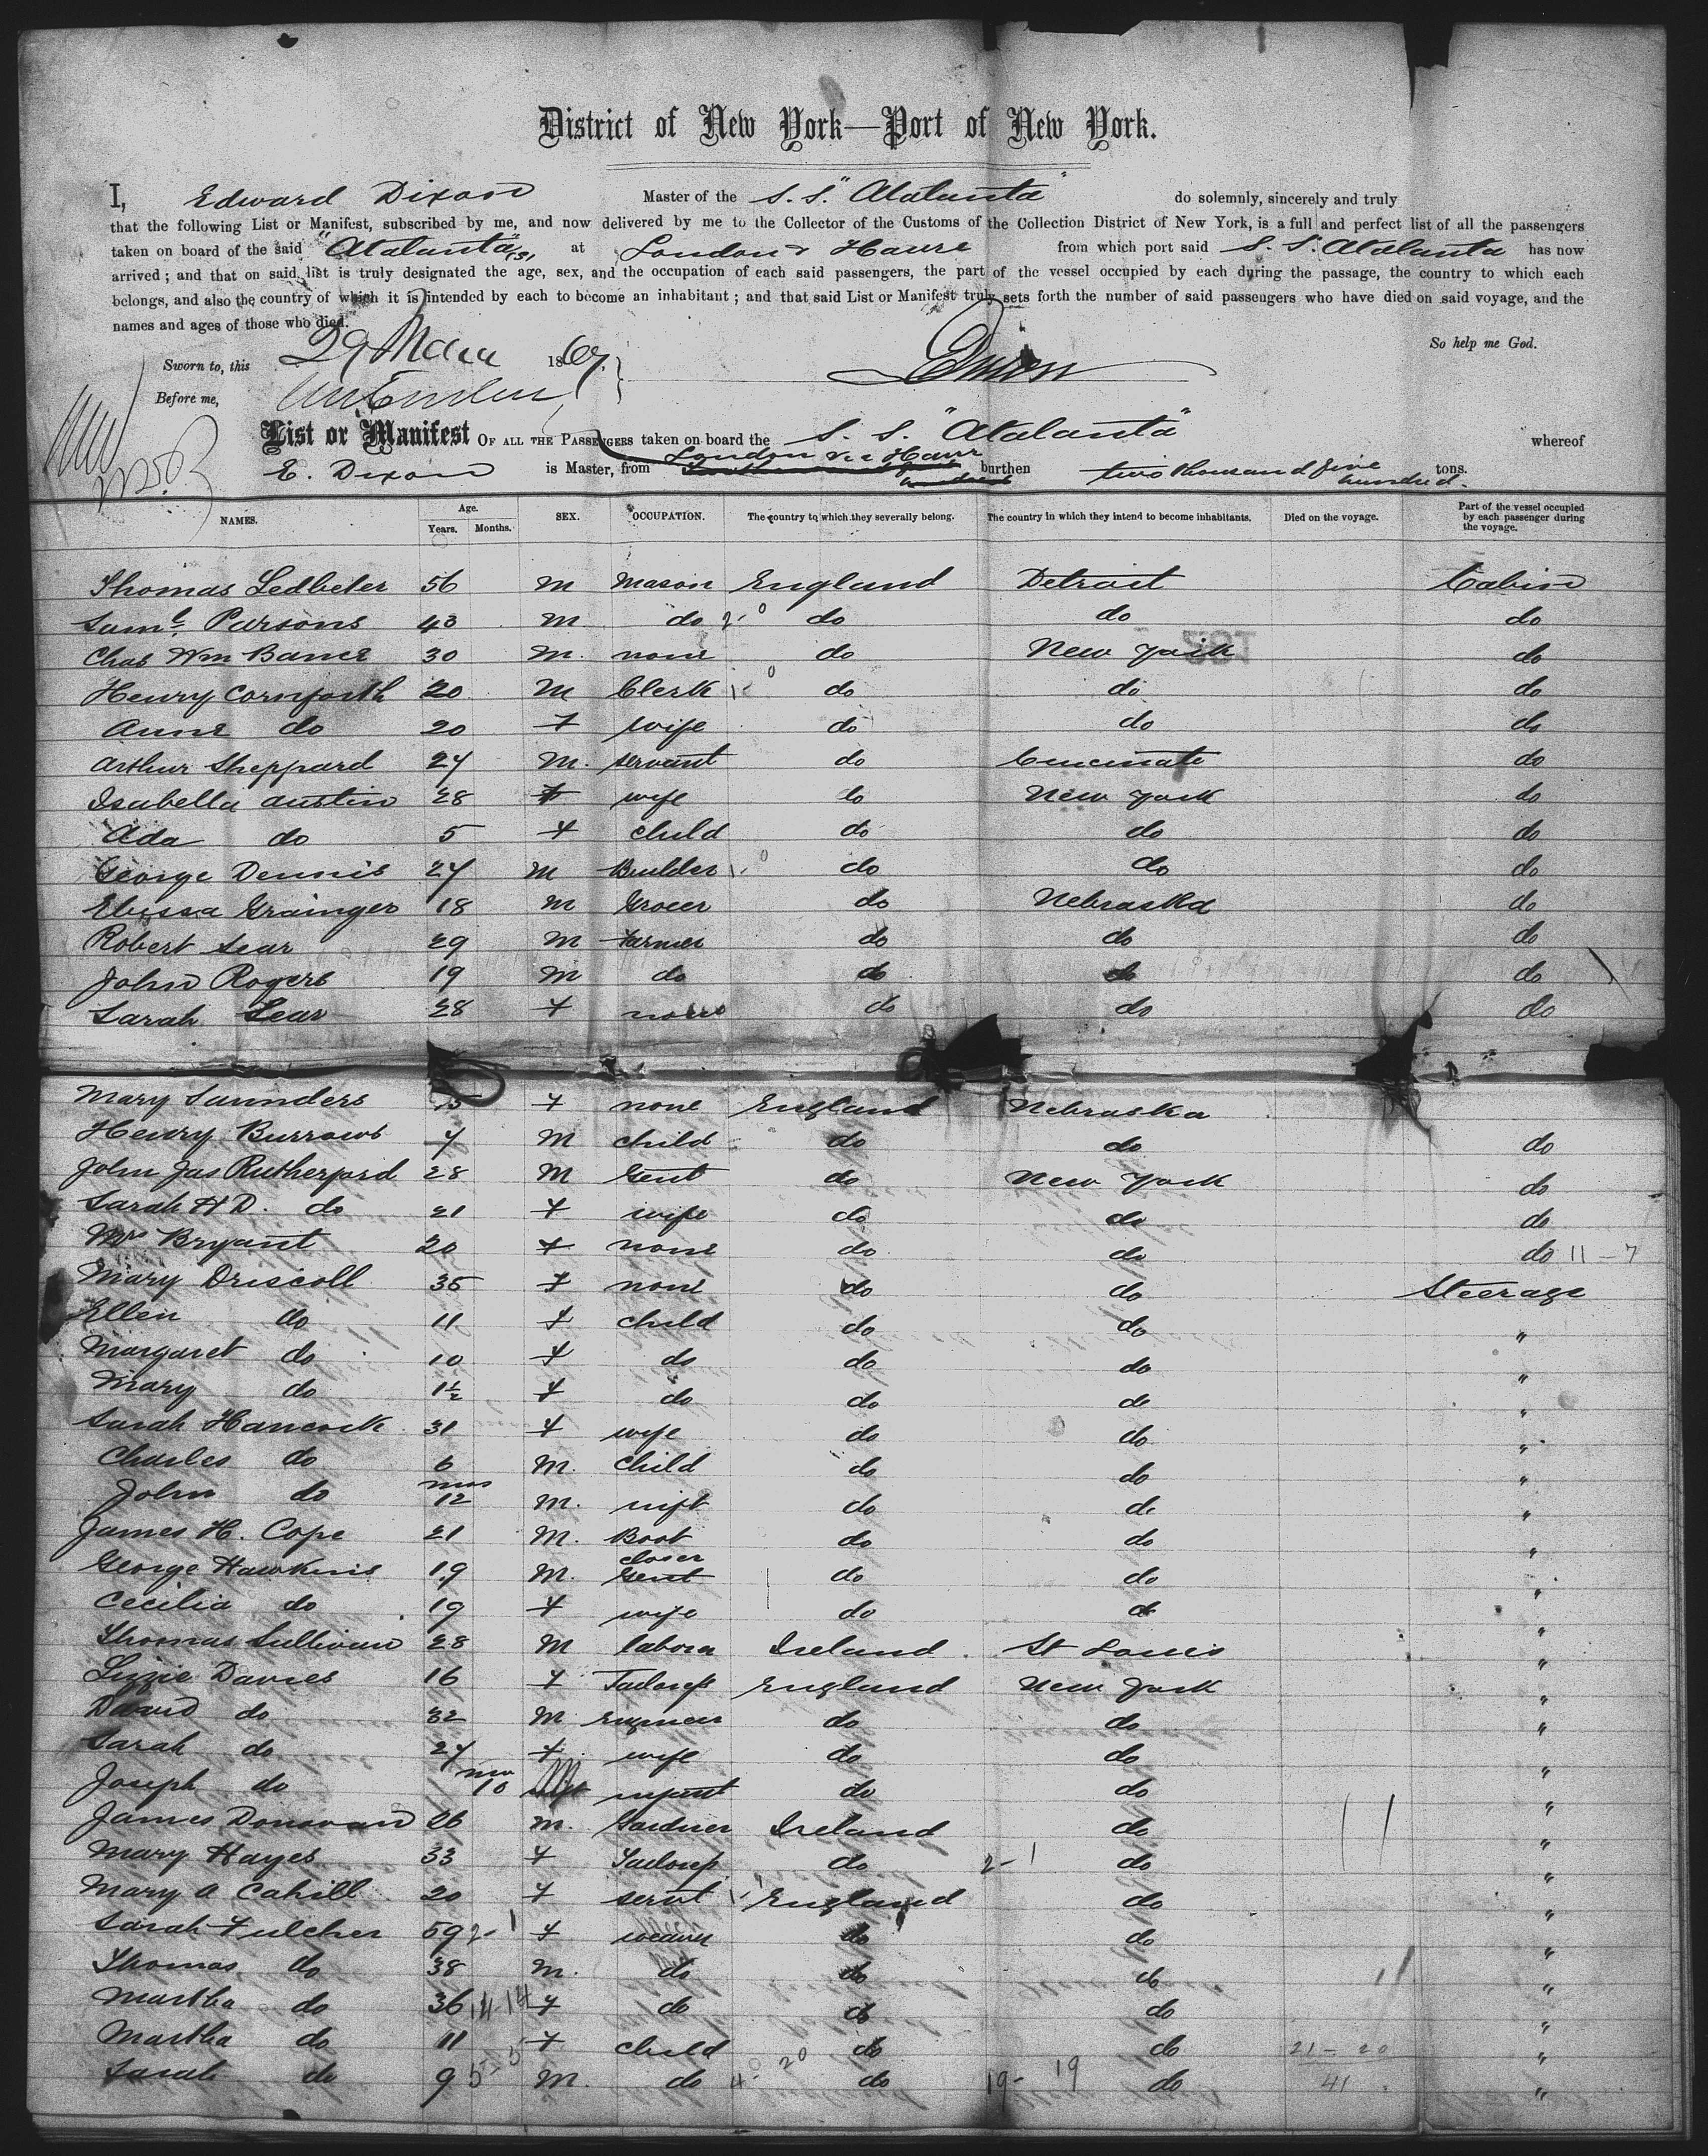 District of New York—Port of New York.
I, Edward Dixon Master of the S.S. "Atalanta" do solemnly, sincerely and truly
that the following List or Manifest, subscribed by me, and now delivered by me to the Collector of the Customs of the Collection District of New York, is a full and perfect list of all the passengers
taken on board of the said "Atalanta" at London & Havre from which port said S.S. Atalanta has now
arrived; and that on said list is truly designated the age, sex, and the occupation of each said passengers, the part of the vessel occupied by each during the passage, the country to which each
belongs, and also the country of which it is intended by each to become an inhabitant; and that said List or Manifest truly sets forth the number of said passengers who have died on said voyage, and the
names and ages of those who died.
So help me God.
Sworn to, this 29 March 1867. EDixon
Before me,
List or Manifest OF ALL THE PASSENGERS taken on board the S. S. "Atalanta" whereof
E. Dixon is Master, from London via Havre burthen two thousand five hundred tons.
NAMES. Age. Years. Months. SEX. OCCUPATION. The country to which they severally belong. The country in which they intend to become inhabitants. Died on the voyage. Part of the vessel occupied by each passenger during the voyage.
Thomas Ledbeter 56 M Mason England Detroit Cabin
Saml. Parsons 43 M do 2-0 do do do
Chas Wm 30 M. none do New York do
Henry Cornforth 20 M Clerk 1-0 do do do
Anne do 20 F wife do do do
Arthur Sheppard 24 M. servant do Cincinate do
Isabella Austin 28 F wife do New York do
Ada do 5 F child do do do
George Dennis 24 M Builder 1. 0 do do do
Elyssa Grainger 18 M Grocer do Nebraska do
Robert Sear 29 M Farmer do do do
John Rogers 19 M do do do do
Sarah Sear 28 F none do do do
Mary Saunders F none England Nebraska
Henry Burrows 4 M child do do do
John Jas Rutherford 28 M Gent do New York do
Sarah H D. do 21 F wife do do do
Mrs Bryant 20 F none do do do 11-7
Mary Driscoll 35 F none do do Steerage
Ellen do 11 F child do do "
Margaret do 10 F do do do "
Mary do 1½ F do do do "
Sarah Hancock 31 F wife do do "
Charles do 6 M. child do do "
John do mos 12 M. inft do do "
James H. Cope 21 M. Boot closer do do "
George Hawkins 19 M. Gent do do "
Cecilia do 19 F wife do do "
Thomas Sullivan 28 M labora Ireland St Louis "
Lizzie Davies 16 F Tailoress England New York "
David do 32 M Engineer do do "
Sarah do 24 F. wife do do "
Joseph do mos 10 infant do do "
James Donovan 26 M. Gardner Ireland do "
Mary Hayes 33 F Tailoress do 2-1 do "
Mary A Cahill 20 F servt England do "
Sarah Fulcher 59 2-1 F weaver do do "
Thomas do 38 M. do do do "
Martha do 36 14-14 F do do do "
Martha do 11 F child do do 21-20 "
Sarah do 9 5-5 M. do 4-0 20 do 19-19 do 41 "